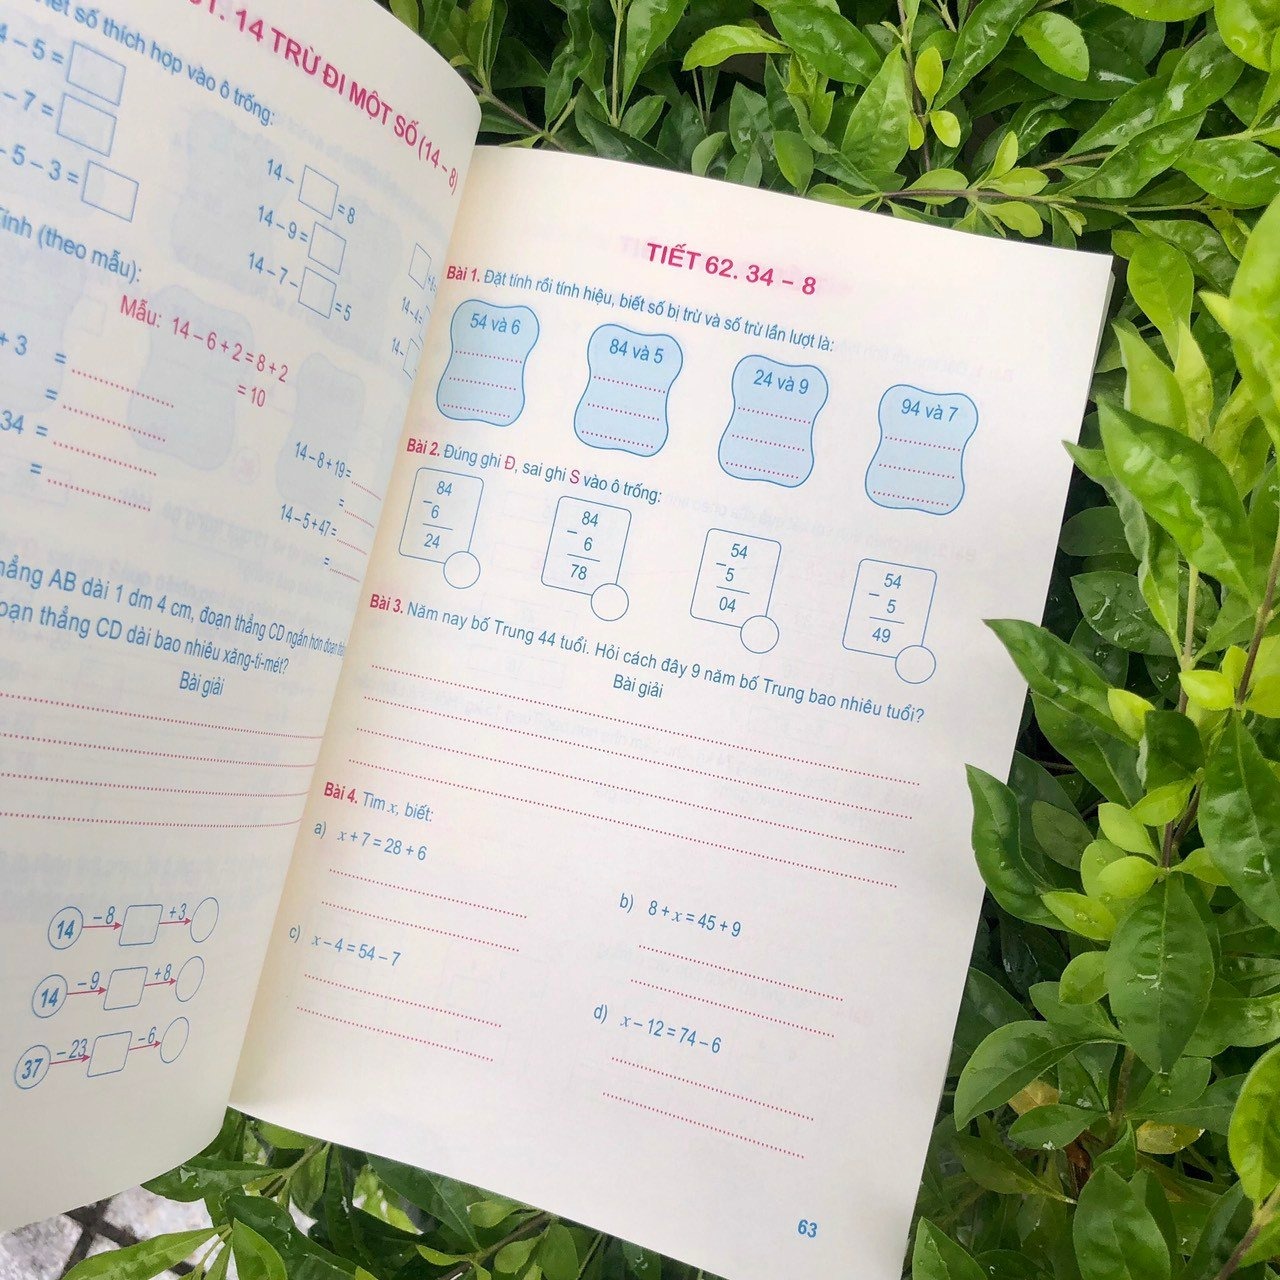 14 TRỪ ĐI MỘT SỐ (14 – 8)
số thích hợp vào ô trống:
– 5 =
– 7 =
– 5 – 3 =
14 – = 8
14 – 9 =
14 – 7 – = 5
14 – 4 =
14 –
(theo mẫu):
Mẫu: 14 – 6 + 2 = 8 + 2
= 10
+ 3 =
=
34 =
=
14 – 8 + 19 =
=
14 – 5 + 47 =
=
AB dài 1 dm 4 cm, đoạn thẳng CD ngắn hơn đoạn
thẳng CD dài bao nhiêu xăng-ti-mét?
Bài giải
14 – 8 + 3
14 – 9 + 8
37 – 23 – 6
TIẾT 62. 34 – 8
Bài 1. Đặt tính rồi tính hiệu, biết số bị trừ và số trừ lần lượt là:
54 và 6
84 và 5
24 và 9
94 và 7
Bài 2. Đúng ghi Đ, sai ghi S vào ô trống:
84
–
6
24
84
–
6
78
54
–
5
04
54
–
5
49
Bài 3. Năm nay bố Trung 44 tuổi. Hỏi cách đây 9 năm bố Trung bao nhiêu tuổi?
Bài giải
Bài 4. Tìm x, biết:
a) x + 7 = 28 + 6
b) 8 + x = 45 + 9
c) x – 4 = 54 – 7
d) x – 12 = 74 – 6
63